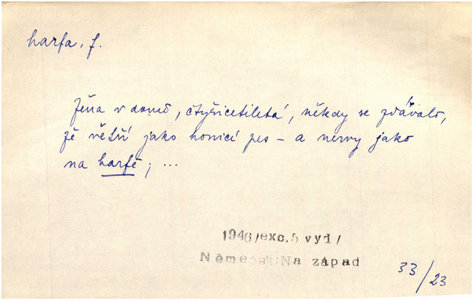 harfa, f.
žena v domě, čtyřicetiletá, někdy se zdávalo,
že větří jako honicí pes – a nervy jako
na harfě; ...
1946/exc.5 vyd/
Němeček: Na západ
33/23